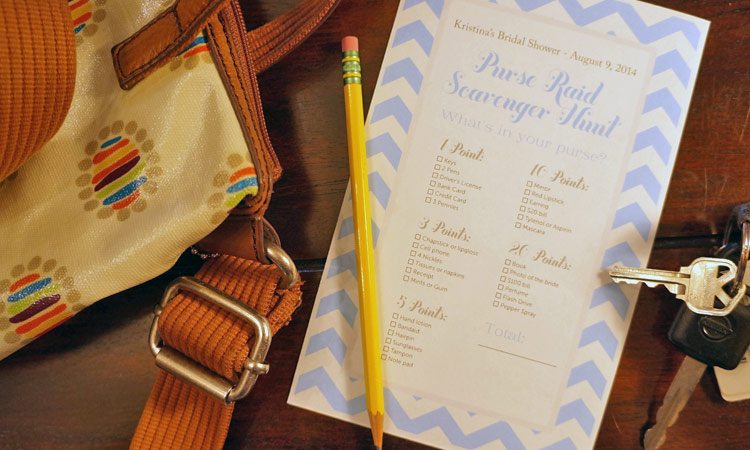 Kristina's Bridal Shower - August 9, 2014
Purse Raid
Scavenger Hunt
What's in your purse?
1 Point:
Keys
2 Pens
Driver's License
Bank Card
Credit Card
3 Pennies
3 Points:
Chapstick or lipgloss
Cell phone
4 Nickles
Tissues or napkins
Receipt
Mints or Gum
5 Points:
Hand lotion
Bandaid
Hairpin
Sunglasses
Tampon
Note pad
10 Points:
Mirror
Red Lipstick
Earring
$20 bill
Tylenol or Aspirin
Mascara
20 Points:
Book
Photo of the bride
$100 bill
Perfume
Flash Drive
Pepper Spray
Total: